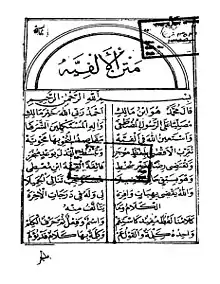 متن الالفيه
بسم الله الرحمن الرحيم
قال محمد هو ابن مالك احمد ربي الله خير مالك
مصليا على الرسول المصطفى وآله المستكملين الشرفا
واستعين الله في الفيه مقاصد النحو بها محويه
تقرب الاقصى بلفظ موجز
وتقتضي رضا بغير سخط فائقة الفية ابن معطي
وهو بسبق حائز تفضيلا مستوجب ثنائي الجميلا
والله يقضي بهبات وافره لي وله في درجات الآخره
الكلام وما يتألف منه
كلامنا لفظ مفيد كاستقم واسم وفعل ثم حرف الكلم
واحده كلمة والقول عم وكلمة بها كلام قد يؤم